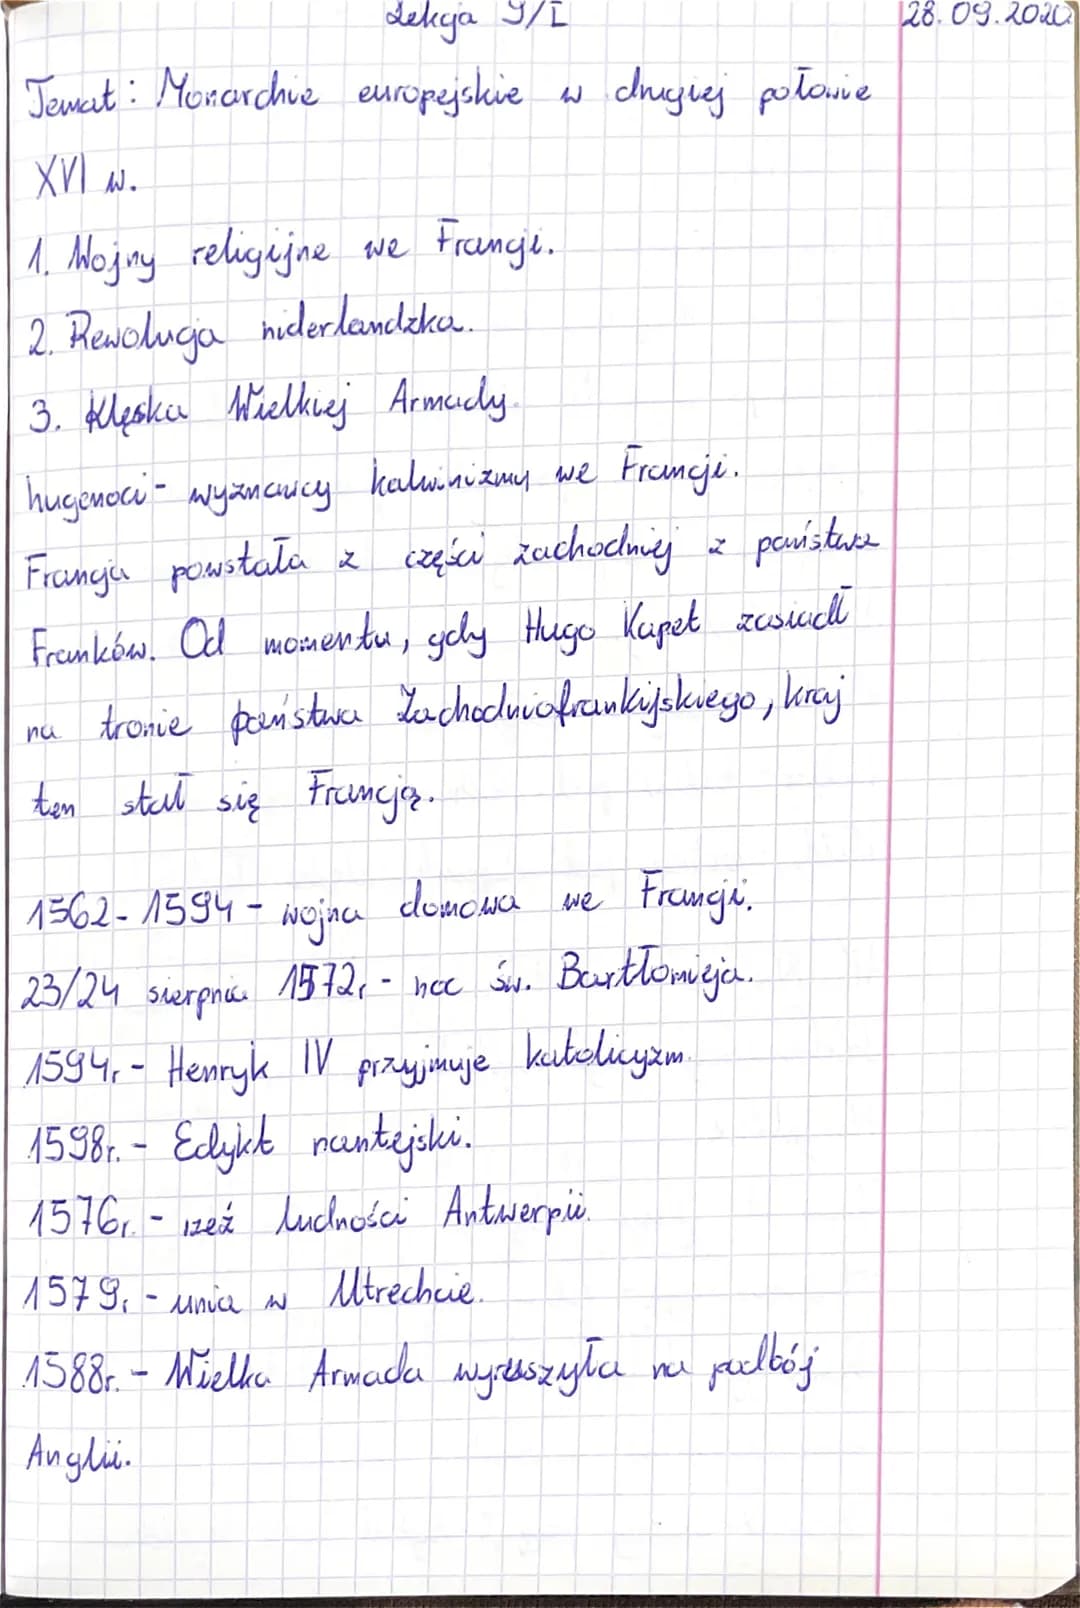 Lekcja 9/I 28.09.2020
Temat: Monarchie europejskie w drugiej połowie
XVI w.
1. Wojny religijne we Francji.
2. Rewolucja niderlandzka.
3. Klęska Wielkiej Armady.
hugenoci - wyznawcy kalwinizmy we Francji.
Francja powstała z części zachodniej z państwa
Franków. Od momentu, gdy Hugo Kapet zasiadł
na tronie państwa Zachodniofrankijskiego, kraj
ten stał się Francją.
1562-1594 - wojna domowa we Francji.
23/24 sierpnia 1572r. - noc św. Bartłomieja.
1594r. - Henryk IV przyjmuje katolicyzm.
1598r. - Edykt nantejski.
1576r. - rzeź ludności Antwerpii.
1579r. - unia w Utrechcie.
1588r. - Wielka Armada wyruszyła na podbój
Anglii.